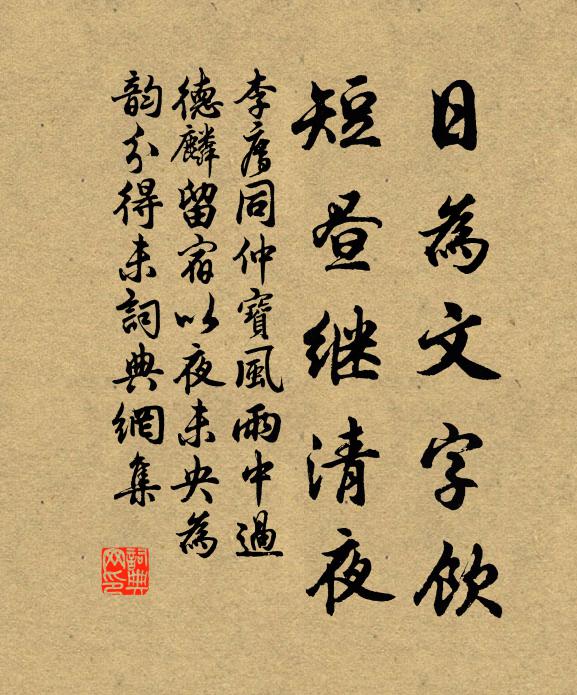 日為文字飲
短昼继清夜
李廌同仲寶風雨中過
德麟留宿以夜未央為
韵分得未詞典網集
詞典
网印